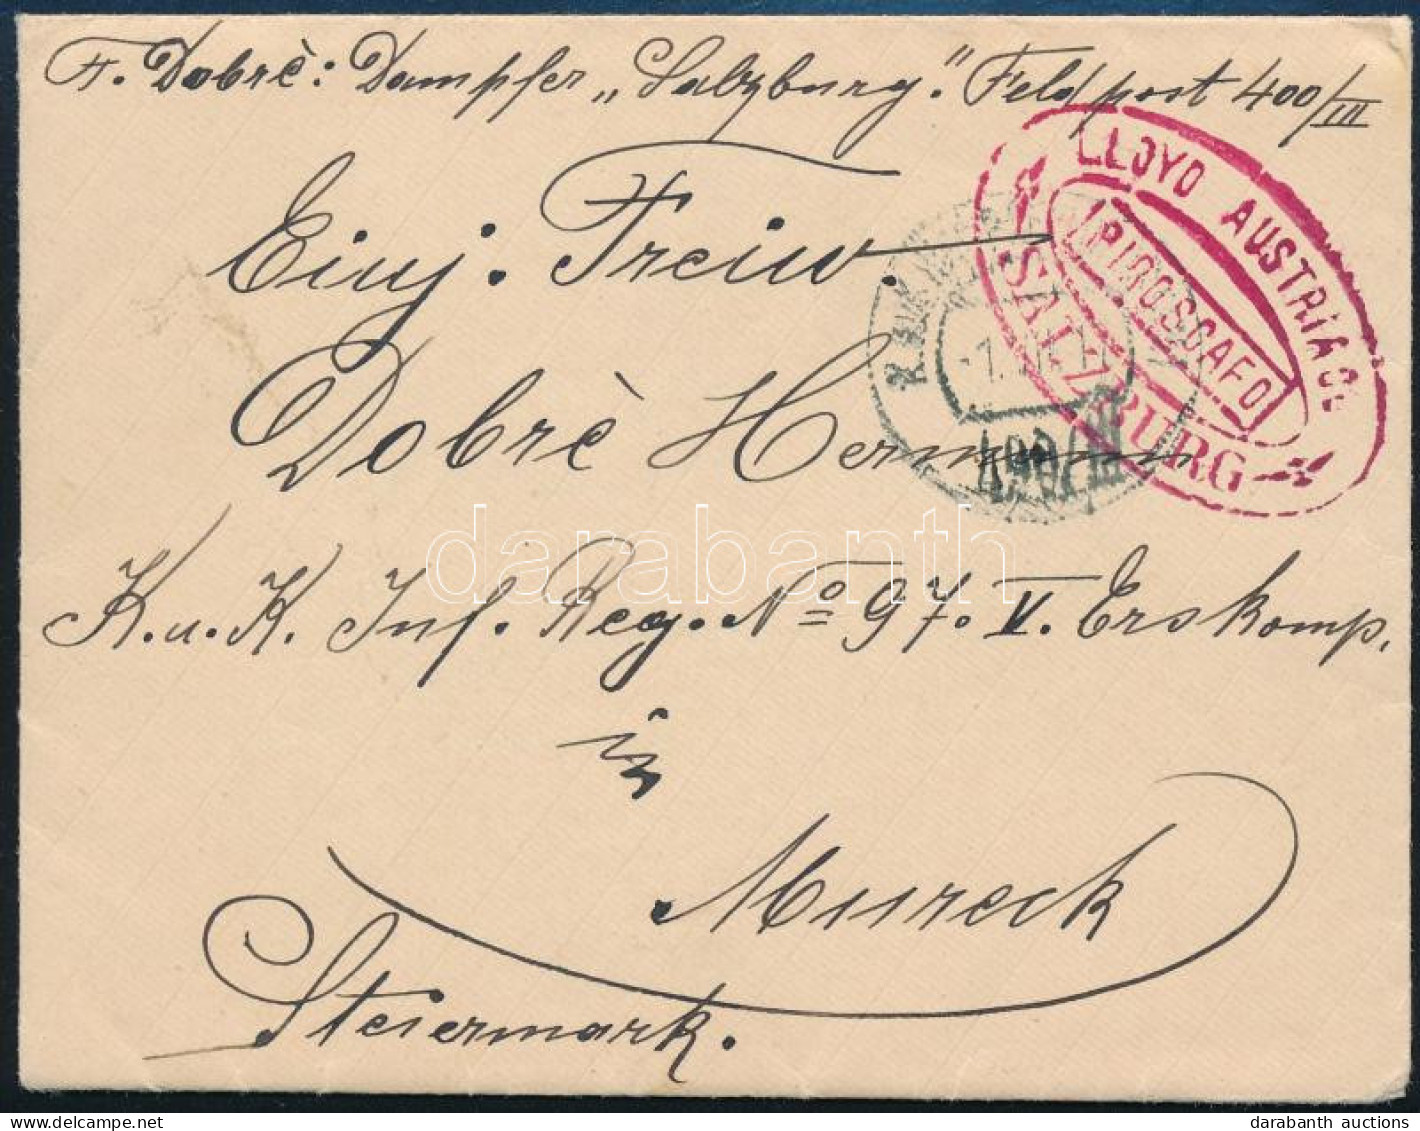 F. Dobrè: Dampfer „Salzburg". Feldpost 400/III
LLOYD AUSTRIACO
PIROSCAFO
SALZBURG
400/III
Einj. Freiw.
Dobrè Hermann
K.u.K. Inf. Reg. No 97. V. Erskomp.
in
Mureck
Steiermark.
darabanth
darabanth auctions